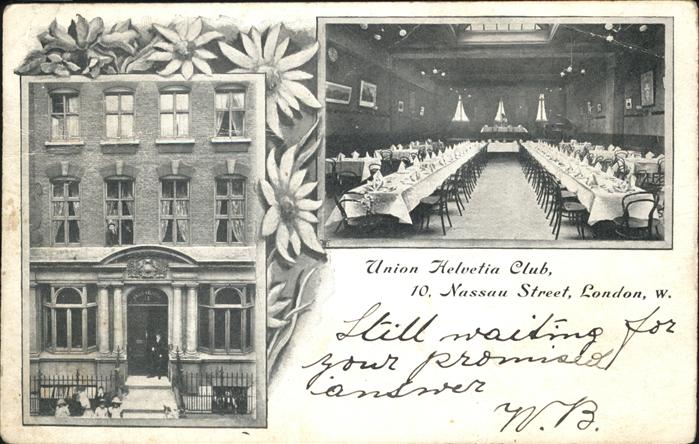 Union Helvetia Club,
10, Nassau Street, London, W.
Still waiting for
your promised
answer
W. B.